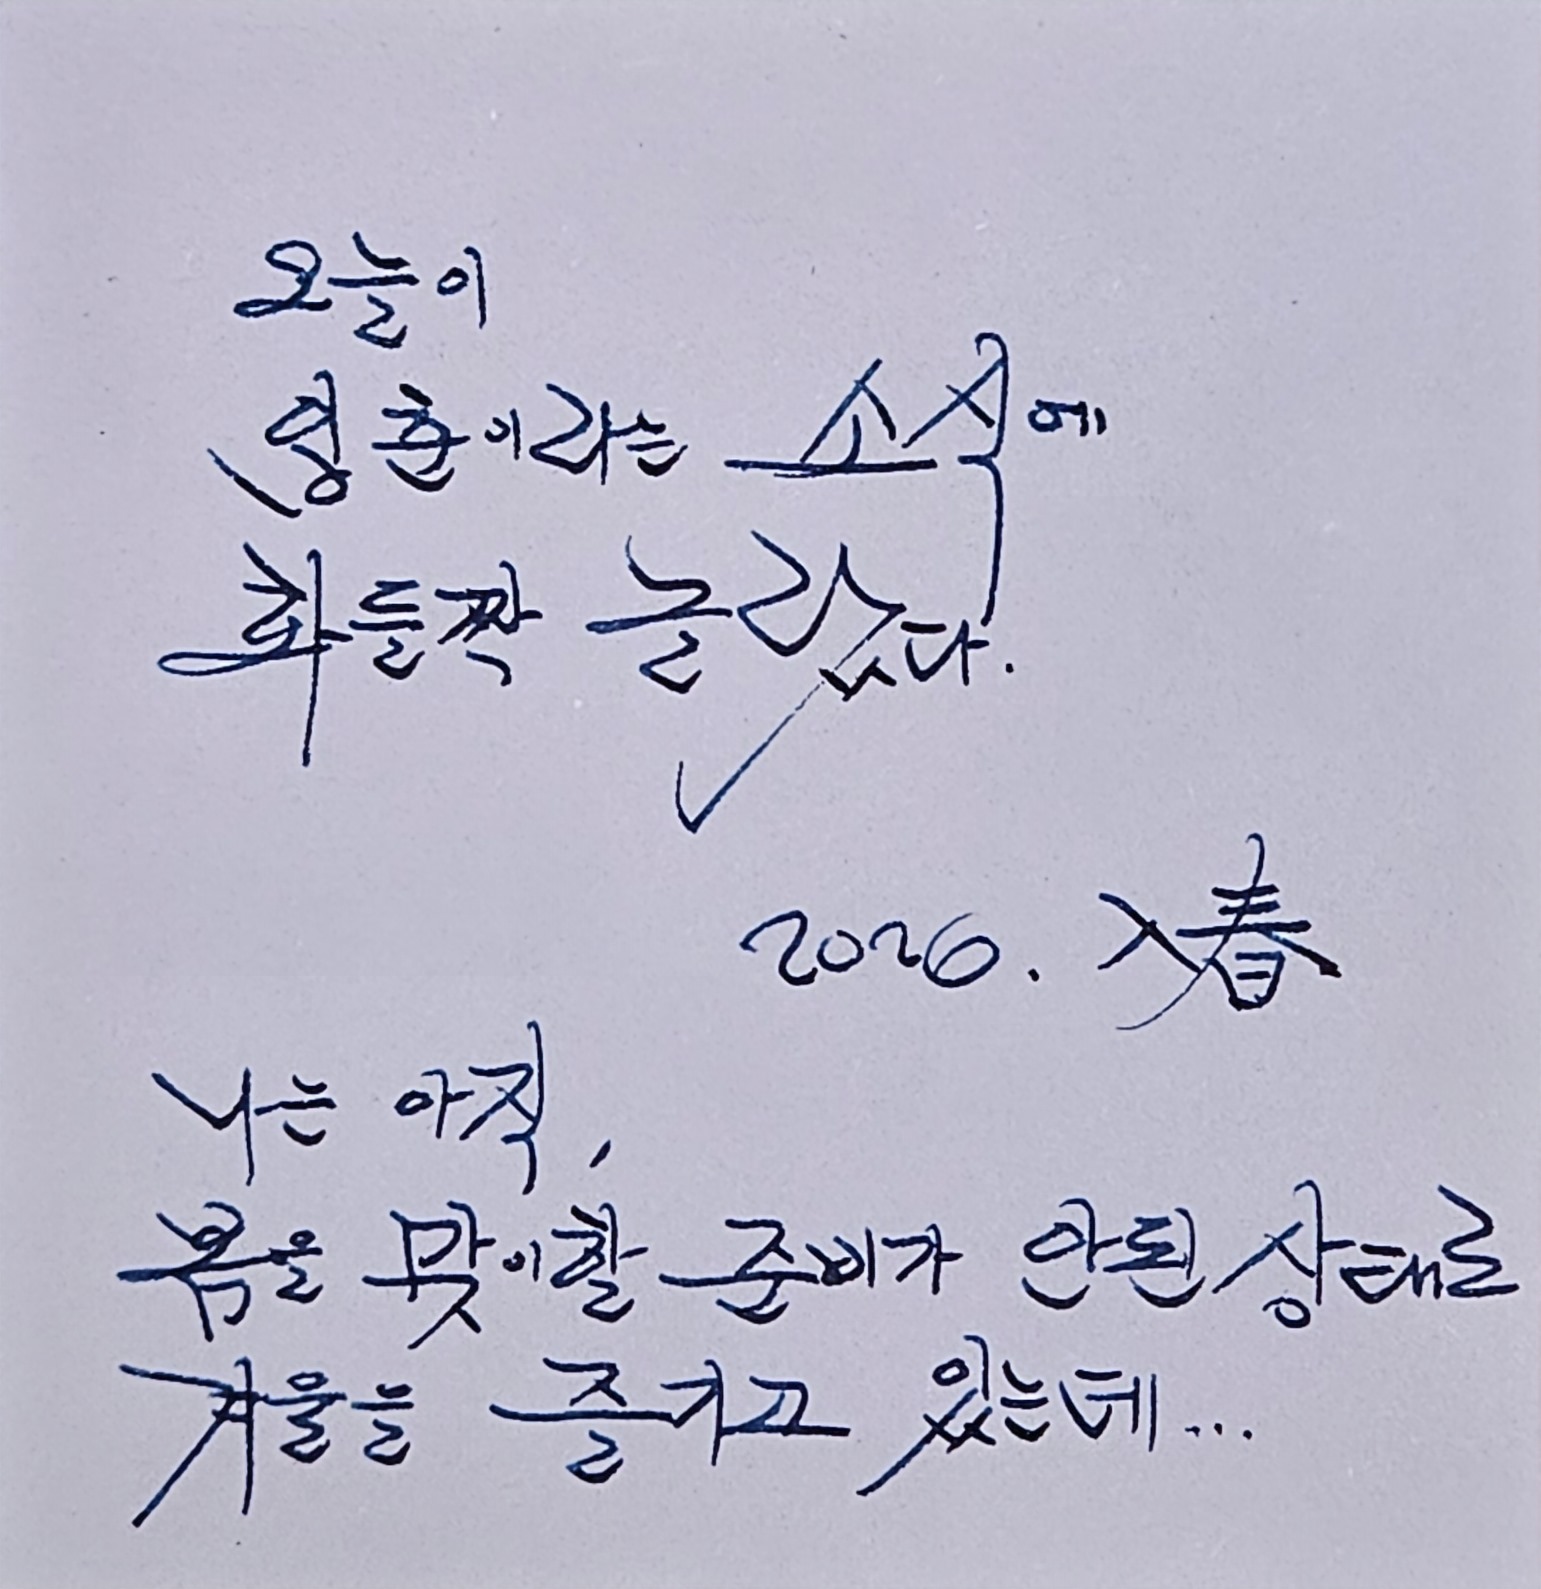 오늘이
입춘이라는 소식에
화들짝 놀랐다.
2026. 入春
나는 아직,
봄을 맞이할 준비가 안된 상태로
겨울을 즐기고 있는데...